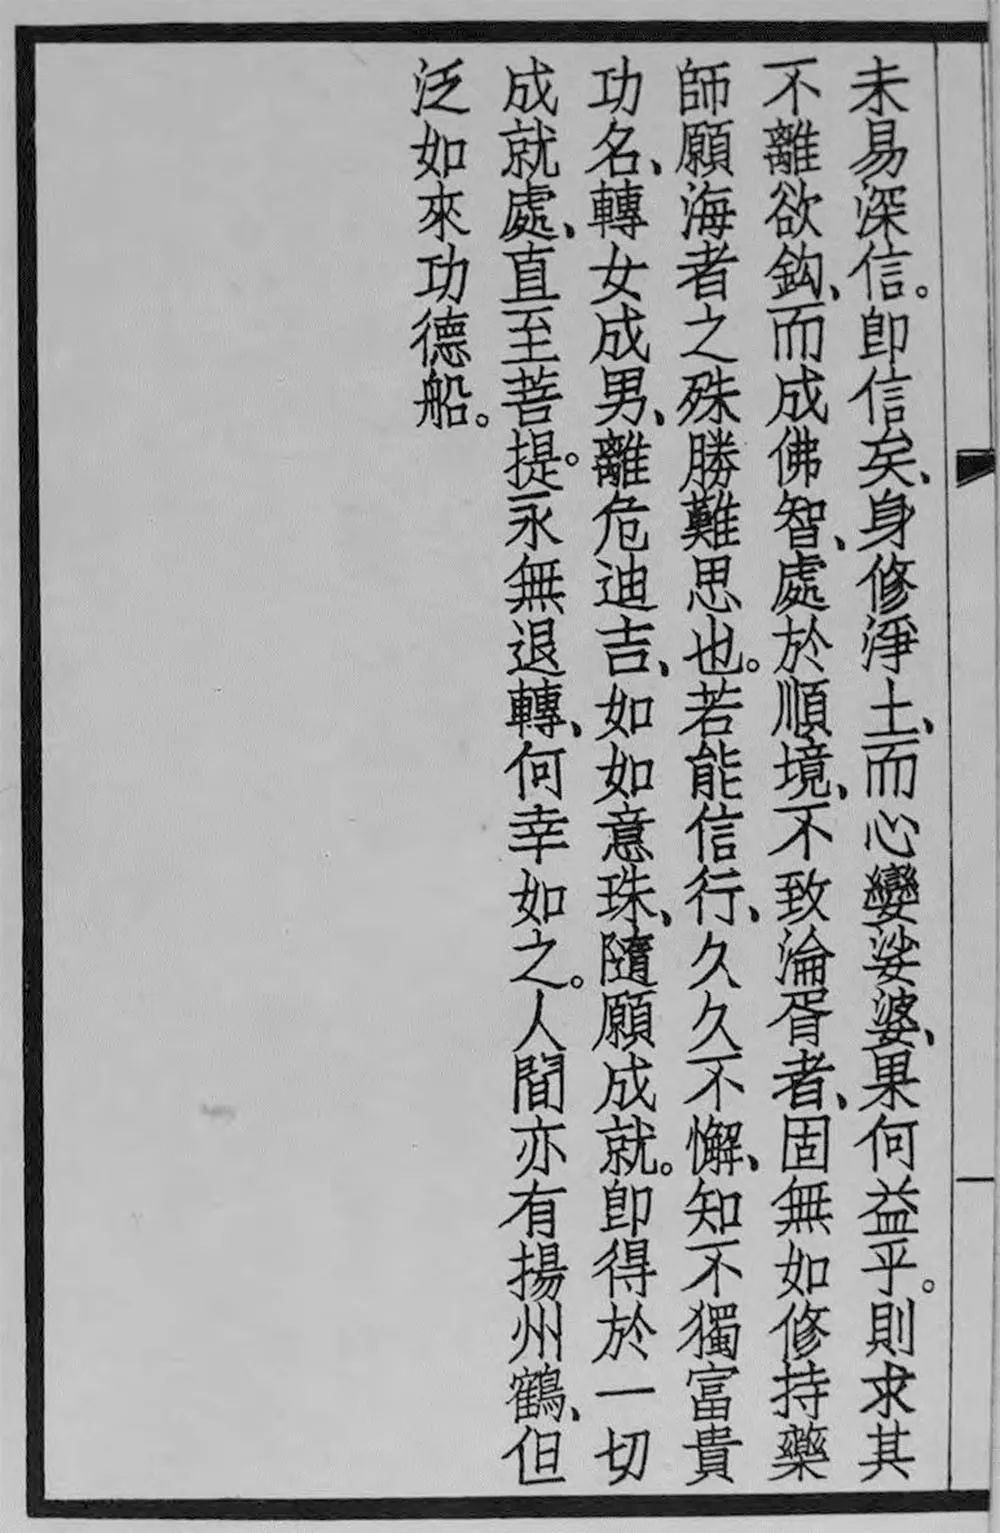 未易深信。即信矣、身修淨土、而心孌娑婆、果何益乎。則求其
不離欲鈎、而成佛智、處於順境、不致淪胥者、固無如修持藥
師願海者之殊勝難思也。若能信行、久久不懈、知不獨富貴
功名、轉女成男、離危迪吉、如如意珠、隨願成就。即得於一切
成就處、直至菩提。永無退轉、何幸如之。人間亦有揚州鶴、但
泛如來功德船。